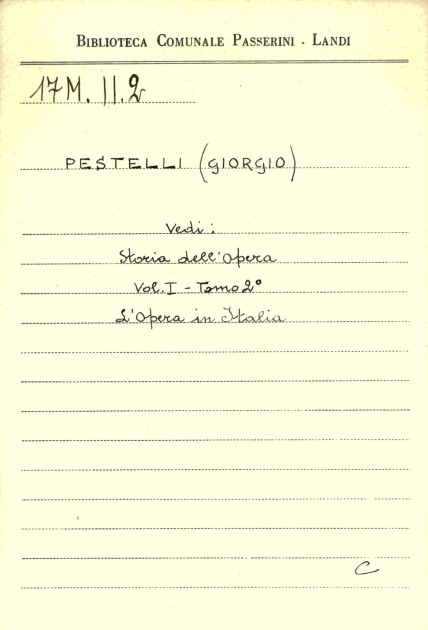 BIBLIOTECA COMUNALE PASSERINI - LANDI
17M. II.2
PESTELLI (GIORGIO)
Vedi:
Storia dell'Opera
Vol. I - Tomo 2°
L'Opera in Italia
C